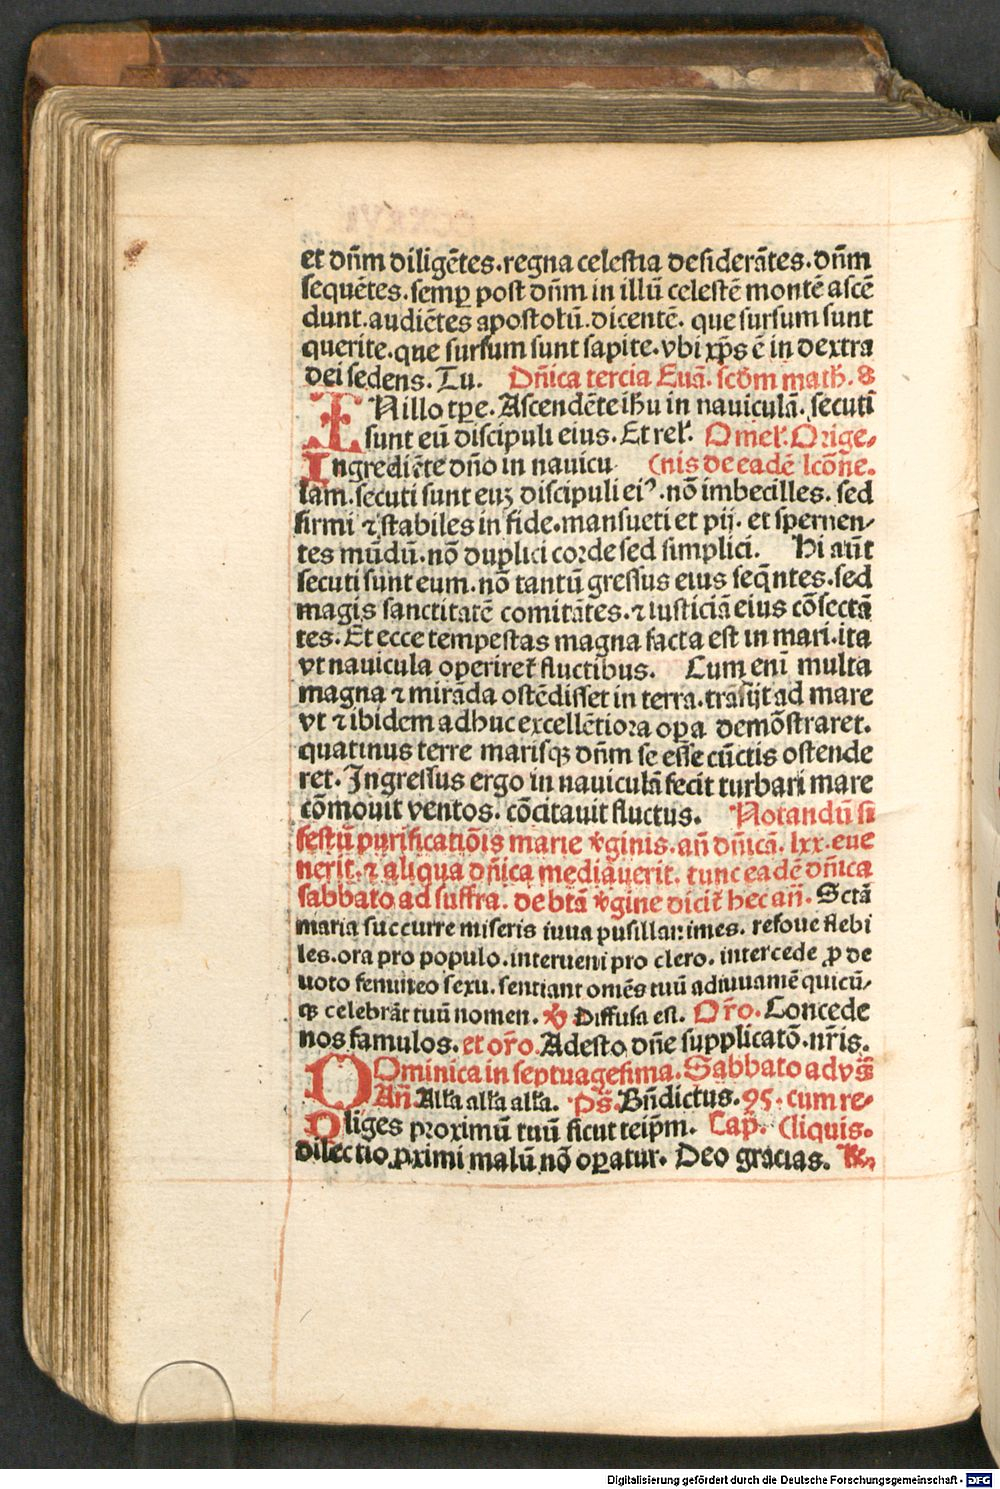 et dñm diligētes.regna celestia desiderātes.dñm
sequētes.semꝑ post dñm in illū celestē montē ascē
dunt.audiētes apostolū.dicentē. que sursum sunt
querite.que sursum sunt sapite.vbi xp̄s ē in dextra
dei sedens. Tu. Dñica tercia Euā. scdm math. 8
IN illo tꝑe. Ascendēte ihu in nauiculā. secuti
sunt eū discipuli eius. Et rel. Omel. Orige⸗
Ingrediēte dño in nauicu (nis de eadē lcōne.
lam. secuti sunt euꝫ discipuli eiꝰ. nō imbecilles. sed
firmi ⁊ stabiles in fide. mansueti et pij. et spernen⸗
tes mūdū.nō duplici corde sed simplici. Hi aūt
secuti sunt eum. nō tantū gressus eius seq̄ntes. sed
magis sanctitatē comitātes.⁊ iusticiā eius cōsectā
tes. Et ecce tempestas magna facta est in mari.ita
vt nauicula operiret̄ fluctibus. Cum enī multa
magna ⁊ mirāda ostēdisset in terra.trāsijt ad mare
vt ⁊ ibidem adhuc excellētiora oꝑa demōstraret.
quatinus terre marisqꝫ dñm se esse cūctis ostende
ret. Ingressus ergo in nauiculā fecit turbari mare
cōmouit ventos. cōcitauit fluctus. Notandū si
festū purificatiōis marie v̾ginis. añ dñicā. lxx. eue
nerit. ⁊ aliqua dñica mediauerit. tunc eadē dñica
sabbato ad suffra. de btā v̾gine dicit̄ hec añ. Sctā
maria succurre miseris iuua pusillanimes. refoue flebi
les.ora pro populo.interueni pro clero. intercede ꝓ de
uoto femineo sexu. sentiant omēs tuū adiuuamē quicū⸗
qꝫ celebrāt tuū nomen. ℣ Diffusa est. Or̄o. Concede
nos famulos. et or̄o. Adesto dñe supplicatō. nr̄is.
DOminica in septuagesima. Sabbato ad vs̄
Añ Alla alla alla. Ps̄. Bñdictus. 95. cum re⸗
Diliges proximū tuū sicut teip̄m. Cap̄. (liquis.
dilectio ꝓximi malū nō oꝑatur. Deo gracias. ℞.
Digitalisierung gefördert durch die Deutsche Forschungsgemeinschaft - DFG